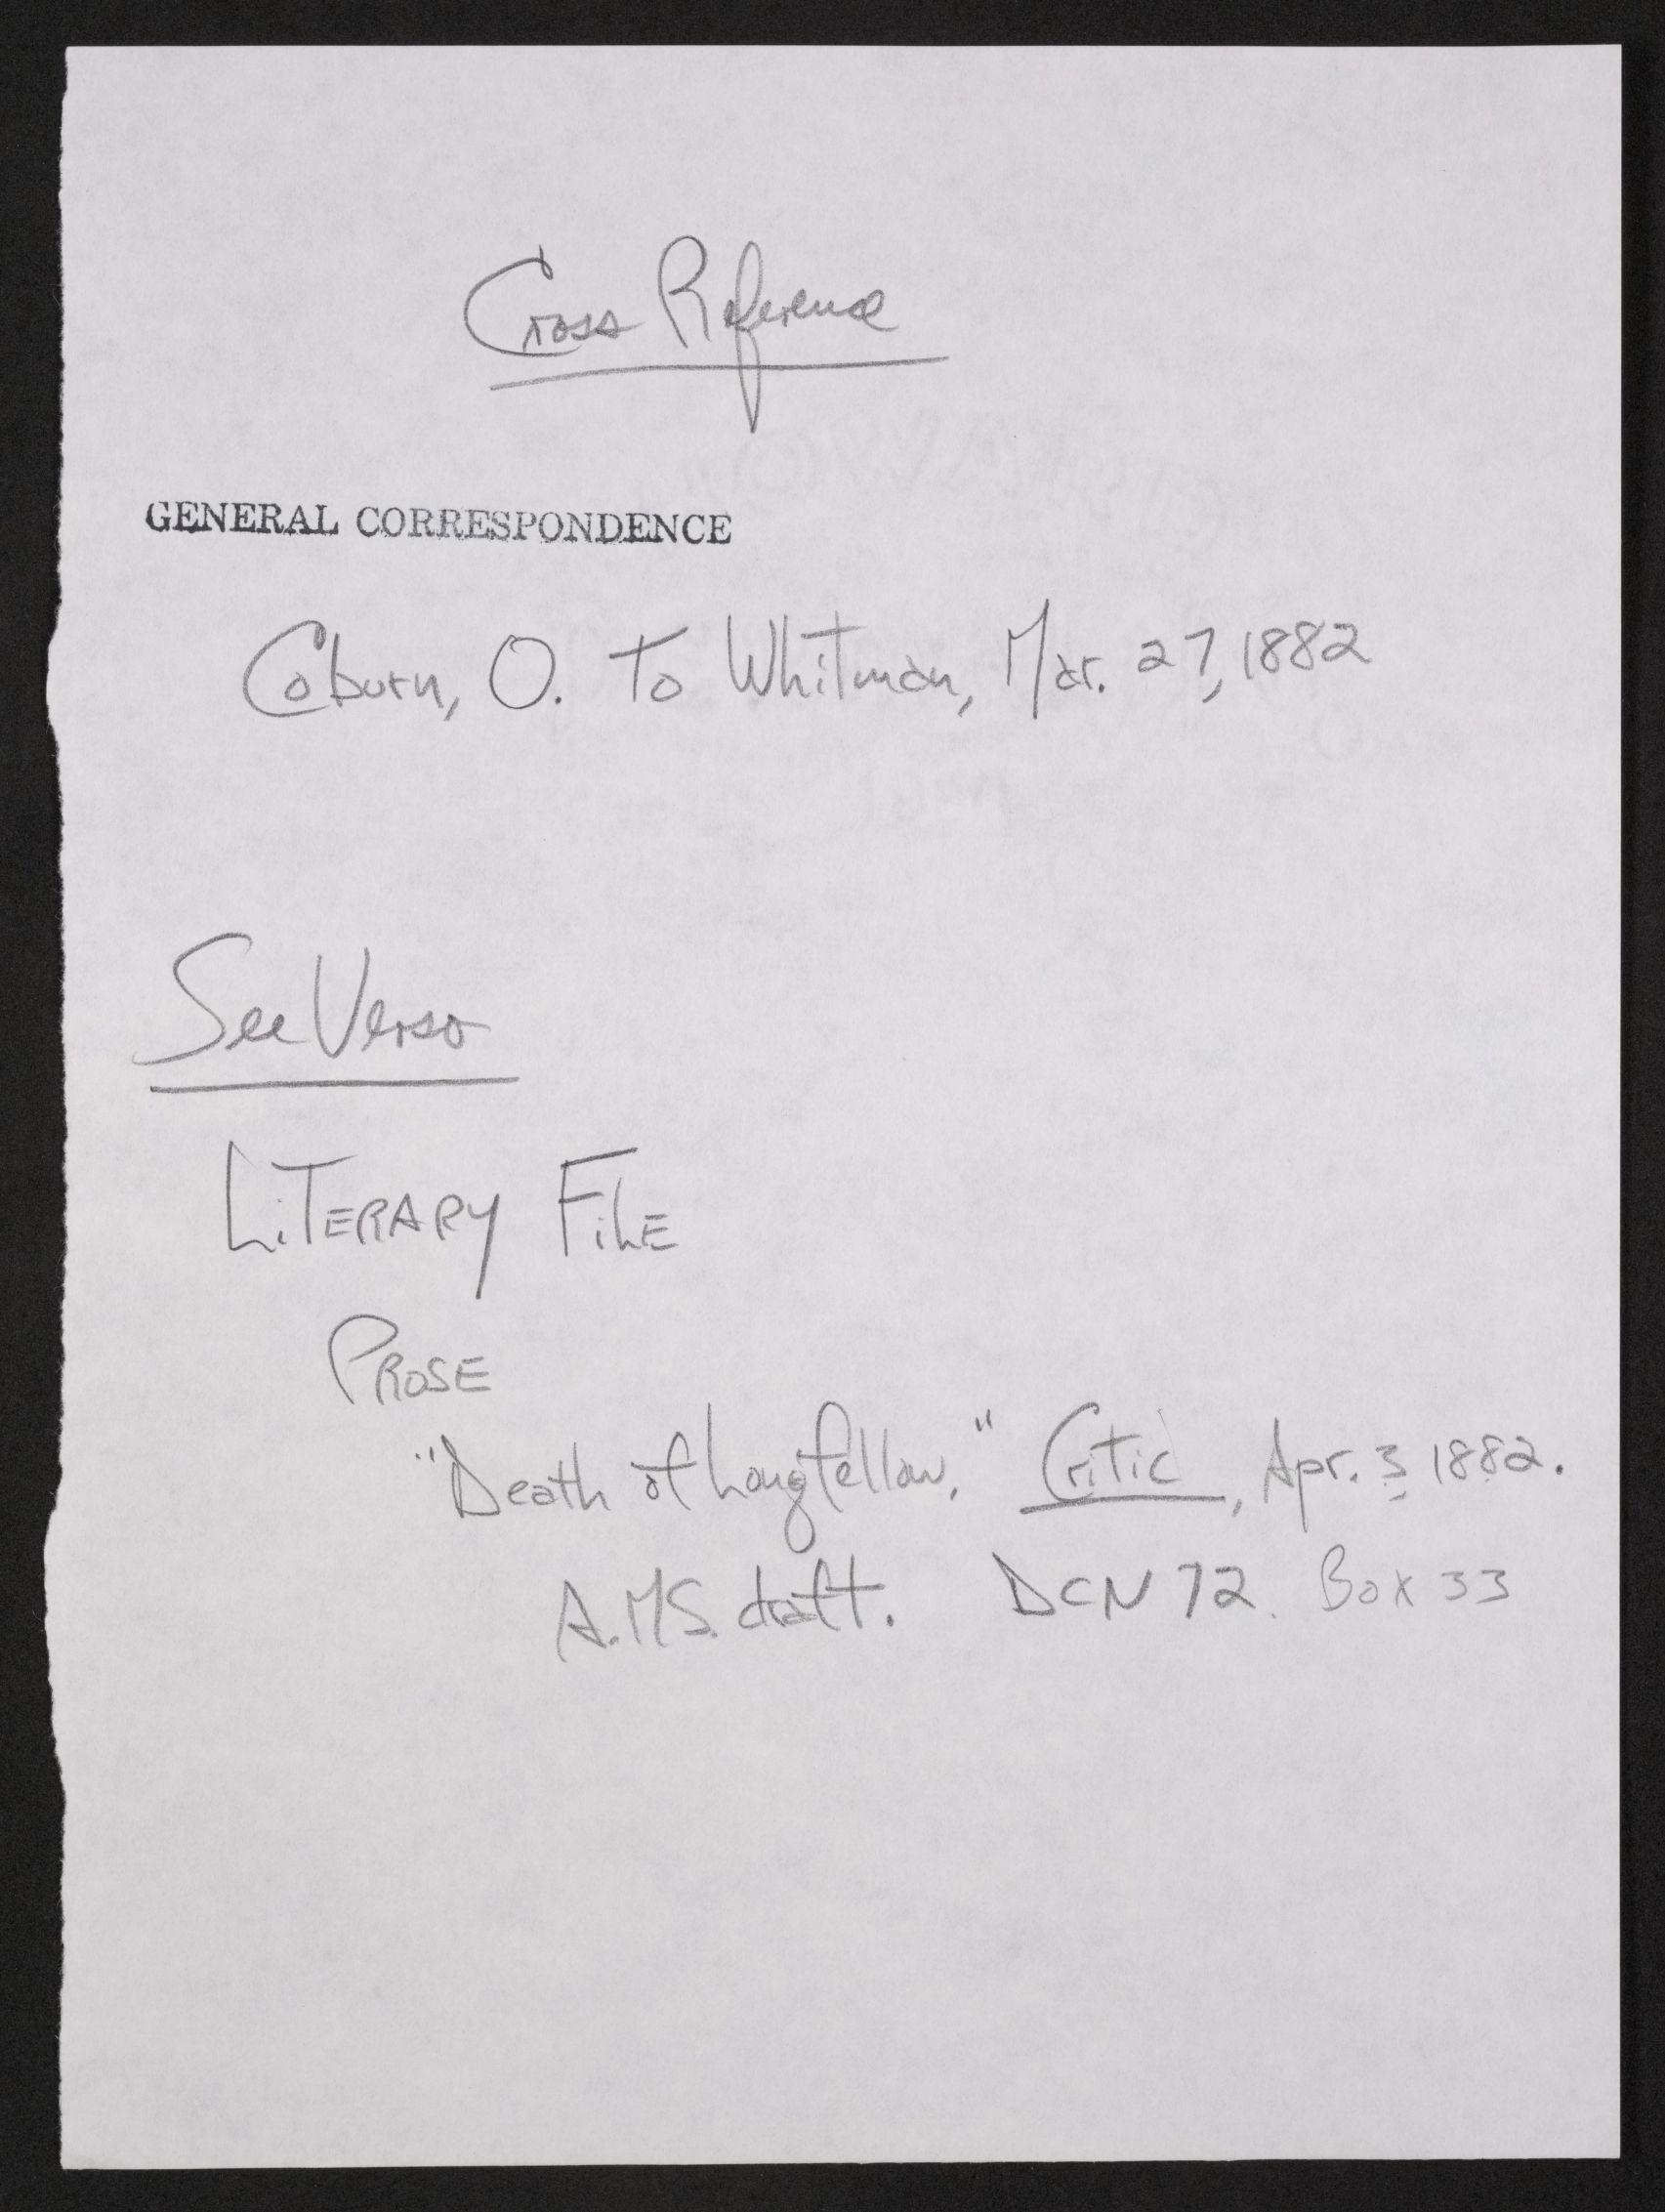 Cross Reference
GENERAL CORRESPONDENCE
Coburn, O. To Whitman, Mar. 27, 1882
See Verso
LITERARY FILE
PROSE
"Death of Longfellow." Critic, Apr. 3 1882.
A.MS. draft. DCN 72. Box 33